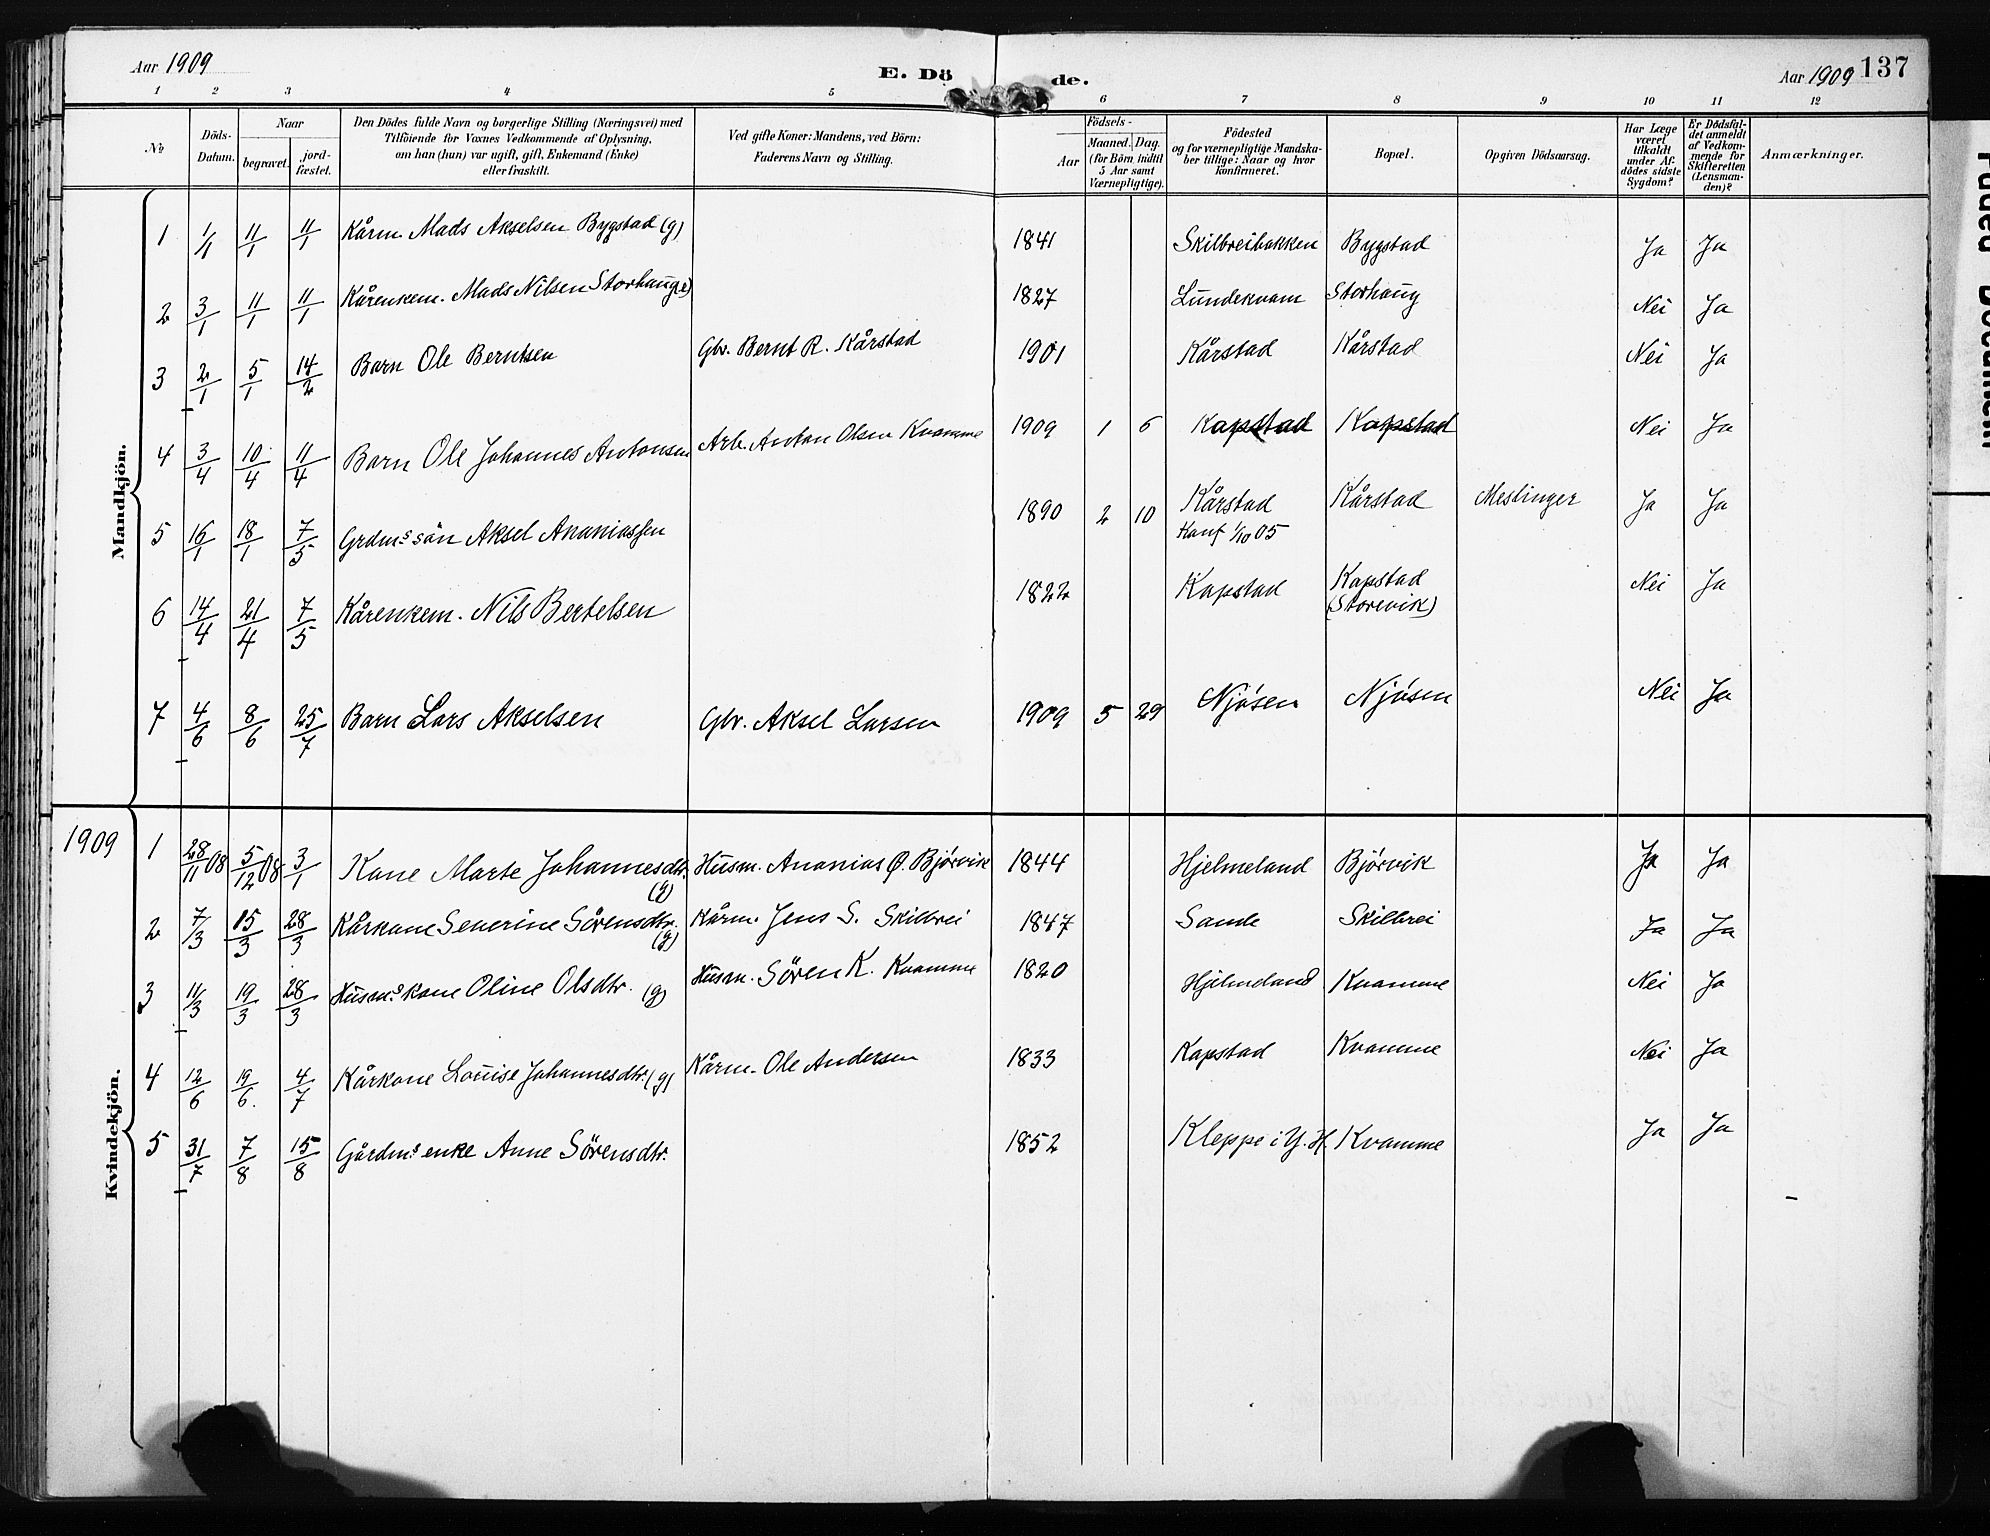 Aar 1909
E. Dö de.
Aar 1909 137
1 2 3 4 5 6 7 8 9 10 11 12
№ Döds-Datum. Naar begravet. jord-fæstet. Den Dödes fulde Navn og borgerlige Stilling (Næringsvei) med Tilföiende for Voxnes Vedkommende af Oplysning, om han (hun) var ugift, gift, Enkemand (Enke) eller fraskilt. Ved gifte Koner: Mandens, ved Börn: Faderens Navn og Stilling. Födsels- Aar Maaned. Dag. (for Börn indtil 5 Aar samt Værnepligtige). Födested og for værnepligtige Mandska-ber tillige: Naar og hvor konfirmeret. Bopæl. Opgiven Dödsaarsag. Har Læge været tilkaldt under Af-dödes sidste Sygdom? Er Dödsfal-det anmeldt af Vedkom-mende for Skifteretten (Lensman-den)? Anmærkninger.
Mandkjön.
1 1/1 11/1 11/1 Kårm. Mads Akselsen Bygstad (g) 1841 Skilbreibakken Bygstad Ja Ja
2 3/1 11/1 11/1 Kårenkem. Mads Nilsen Storhaug (e) 1827 Lundekvam Storhaug Nei Ja
3 2/1 5/1 14/2 Barn Ole Berntsen Gbr. Bernt R. Kårstad 1901 Kårstad Kårstad Nei Ja
4 3/4 10/4 11/4 Barn Ole Johannes Antonsen Arb. Anton Olsen Kvamme 1909 1 6 Kapstad Kapstad Nei Ja
5 16/1 18/1 7/5 Grdms sön Aksel Ananiassen 1890 2 10 Kårstad Kårstad Meslinger Ja Ja
Konf 1/10 05
6 14/4 21/4 7/5 Kårenkem. Nils Bertelsen 1822 Kapstad Kapstad Nei Ja
(Storevik)
7 4/6 8/6 25/7 Barn Lars Akselsen Gbr. Aksel Larsen 1909 5 29 Njøsen Njøsen Nei Ja
Kvindekjön.
1909 1 28/11 08 5/12 08 3/1 Kone Marte Johannesdtr. (g) Husm. Ananias Ø. Bjørvik 1844 Hjelmeland Bjørvik Ja Ja
2 7/3 15/3 28/3 Kårkone Severine Sörensdtr. (g) Kårm. Jens S. Skilbrei 1847 Sande Skilbrei Ja Ja
3 11/3 19/3 28/3 Husms kone Oline Olsdtr. (g) Husm. Sören K. Kvamme 1820 Hjelmeland Kvamme Nei Ja
4 12/6 19/6. 4/7 Kårkone Louise Johannesdtr. (g) Kårm. Ole Andersen 1833 Kapstad Kvamme Nei Ja
5 31/7 7/8 15/8 Gårdms enke Anne Sörensdtr. 1852 Kleppe i Y. H. Kvamme Ja Ja